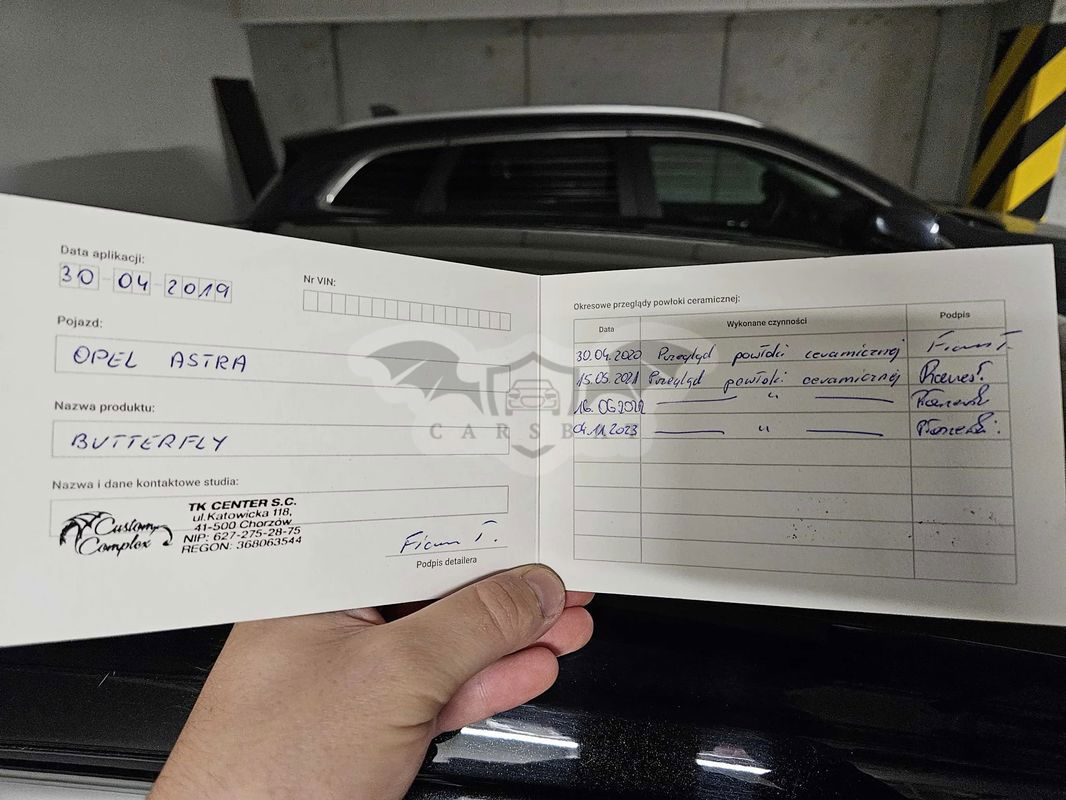 Data aplikacji:
30-04-2019
Nr VIN:
Pojazd:
OPEL ASTRA
Nazwa produktu:
BUTTERFLY
Nazwa i dane kontaktowe studia:
Custom
Complex
TK CENTER S.C.
ul.Katowicka 118,
41-500 Chorzów
NIP: 627-275-28-75
REGON: 368063544
Podpis detailera
Okresowe przeglądy powłoki ceramicznej:
Data Wykonane czynności Podpis
30.04.2020 Przegląd powłoki ceramicznej
15.05.2021 Przegląd powłoki ceramicznej
16.06.2022 — " —
04.11.2023 — " —